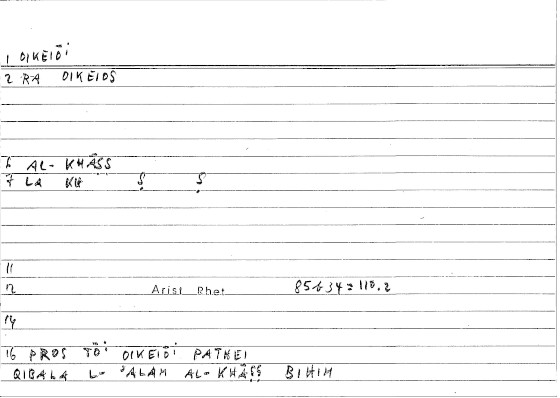 1 OIKEIŌI
2 RA OIKEIOS
6 AL- KHĀṢṢ
7 LA KH Ṣ Ṣ
11
12 Arist Rhet 85b34=110.2
14
16 PROS TŌI OIKEIŌI PATHEI
QIBALA L- ʾALAM AL-KHĀṢṢ BIHIM